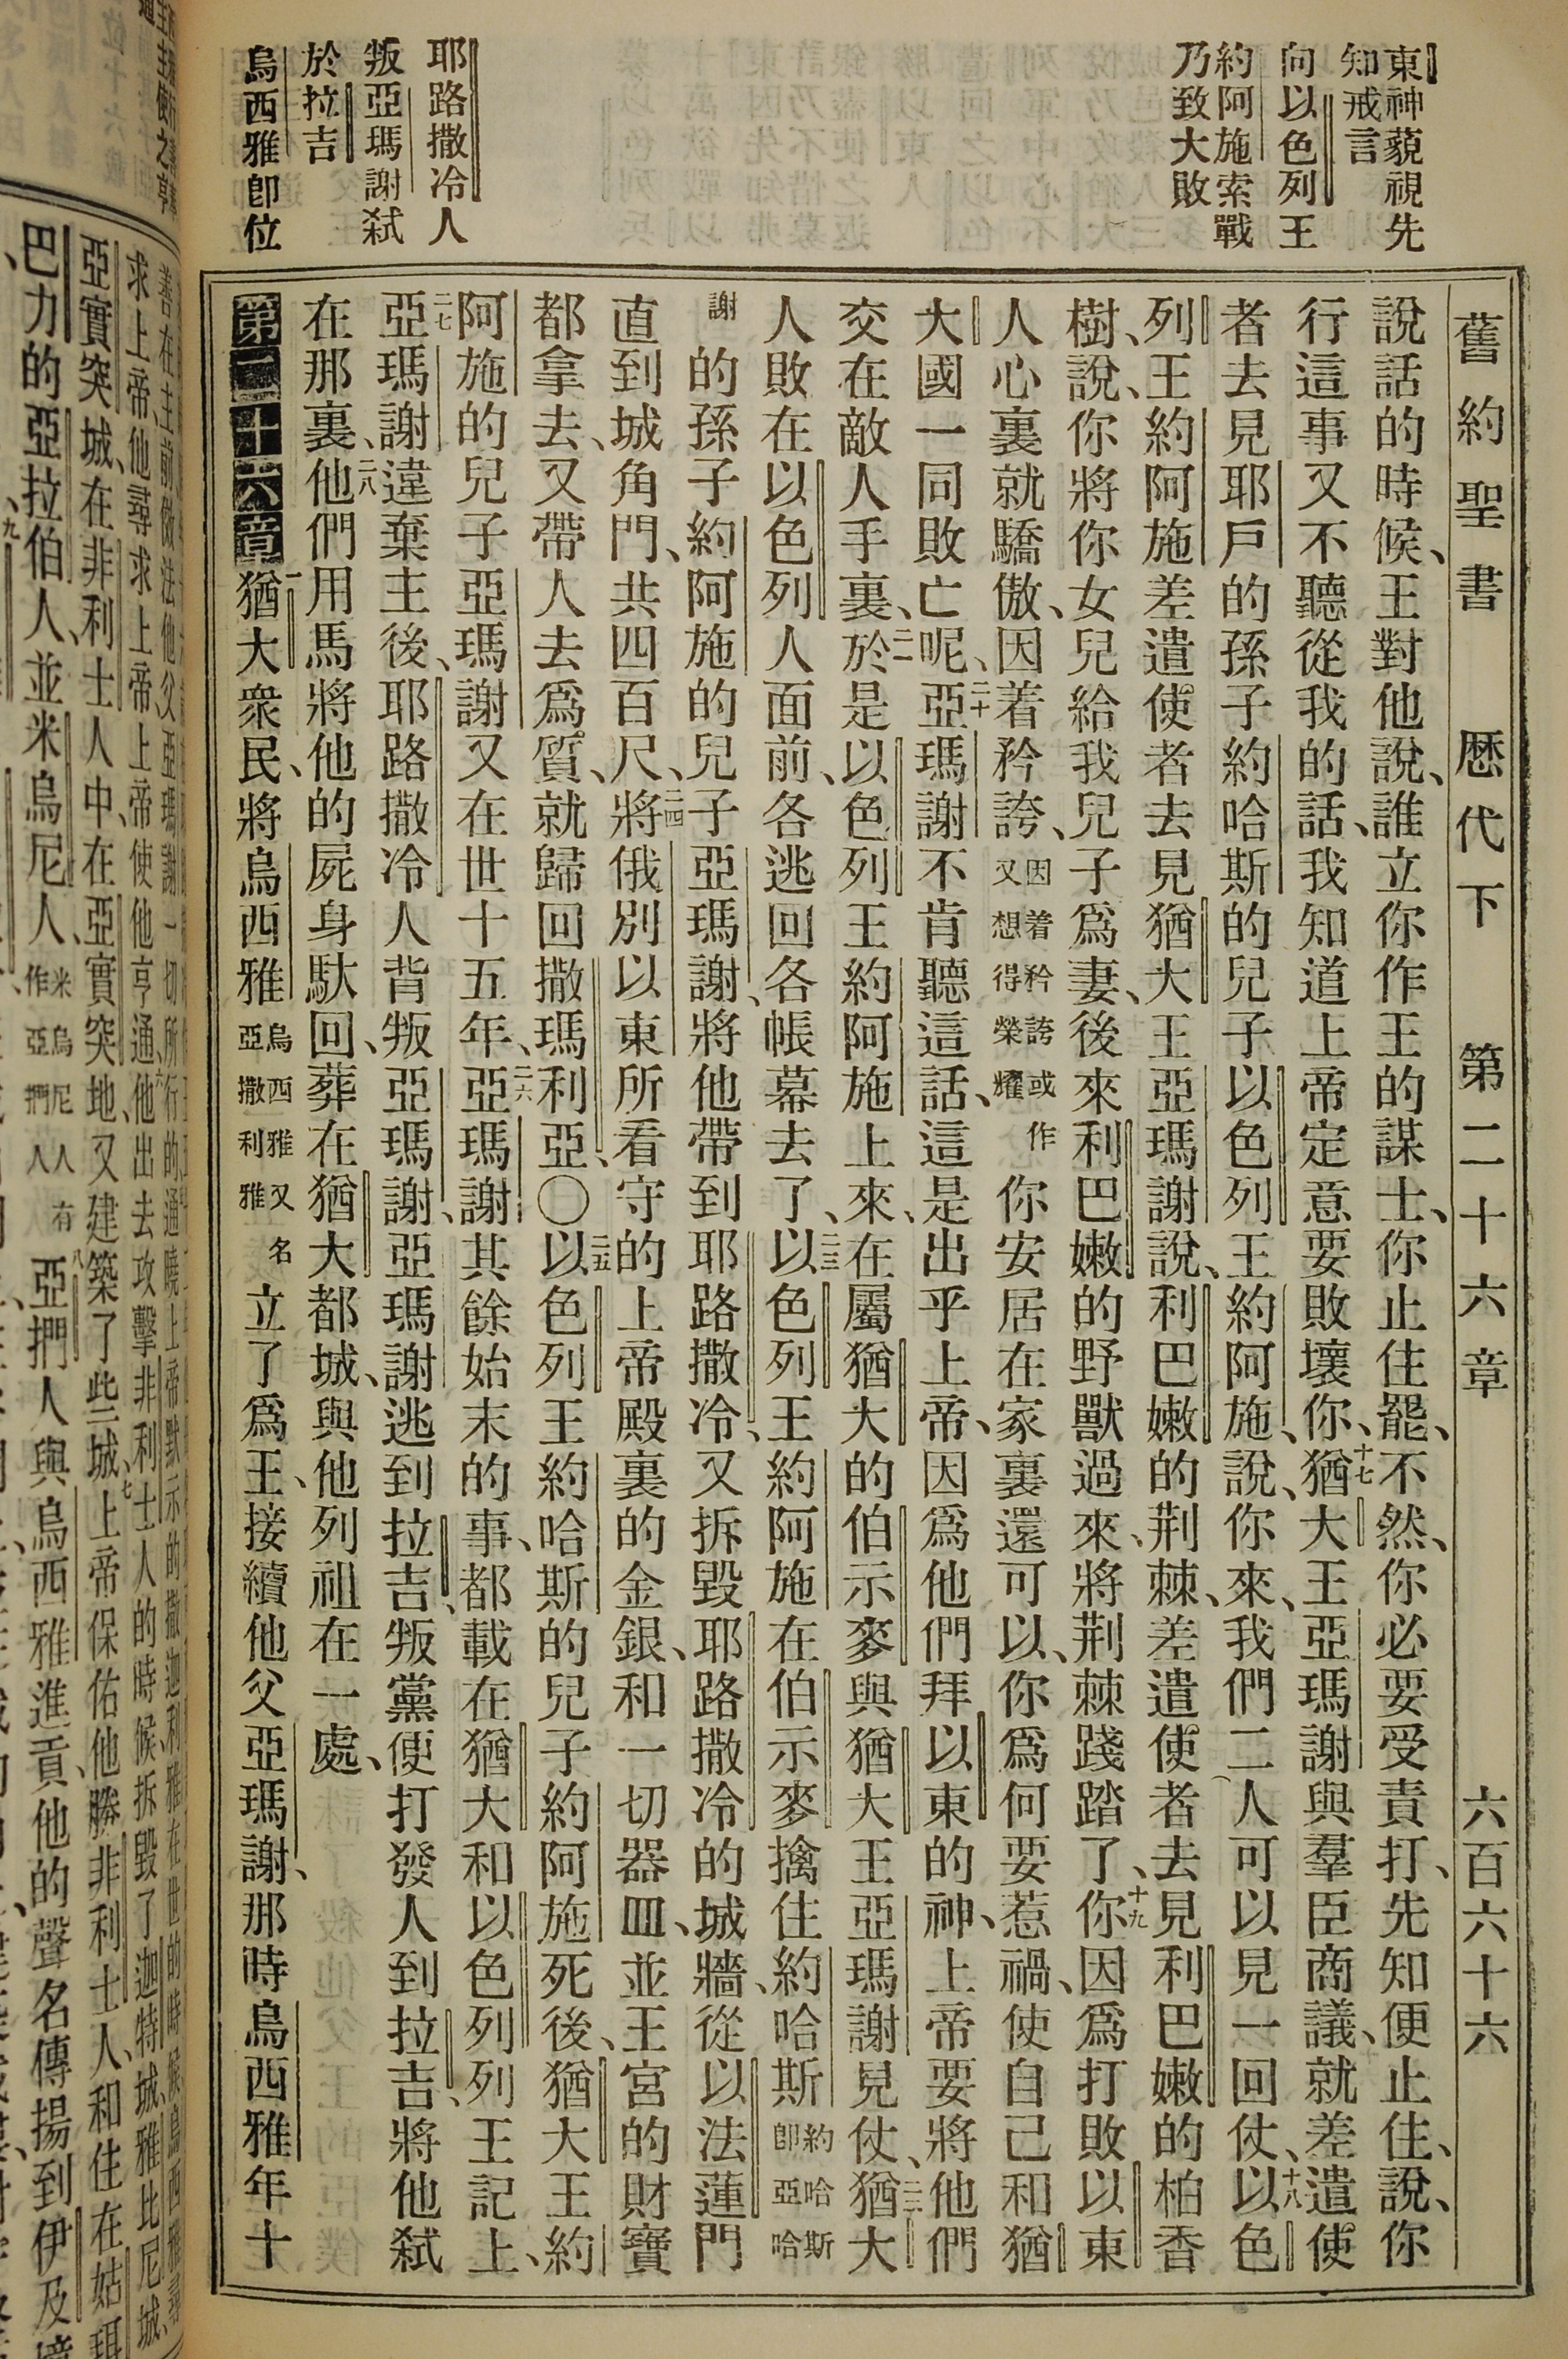 東神藐視先
知戒言
向以色列王
約阿施索戰
乃致大敗
耶路撒冷人
叛亞瑪謝弒
於拉吉
烏西雅卽位
舊約聖書 歷代下 第二十六章 六百六十六
說話的時候、王對他說、誰立你作王的謀士、你止住罷、不然、你必要受責打、先知便止住、說、你
行這事又不聽從我的話、我知道上帝定意要敗壞你、十七猶大王亞瑪謝與羣臣商議、就差遣使
者去見耶戶的孫子約哈斯的兒子以色列王約阿施、說、你來、我們二人可以見一回仗、十八以色
列王約阿施差遣使者去見猶大王亞瑪謝說、利巴嫩的荆棘、差遣使者去見利巴嫩的柏香
樹、說、你將你女兒給我兒子爲妻、後來利巴嫩的野獸過來、將荆棘踐踏了、十九你因爲打敗以東
人心裏就驕傲、因着矜誇、因着矜誇或作又想得榮耀你安居在家裏還可以、你爲何要惹禍、使自己和猶
大國一同敗亡呢、二十亞瑪謝不肯聽這話、這是出乎上帝、因爲他們拜以東的神、上帝要將他們
交在敵人手裏、二一於是以色列王約阿施上來、在屬猶大的伯示麥與猶大王亞瑪謝見仗、二二猶大
人敗在以色列人面前、各逃回各帳幕去了、二三以色列王約阿施在伯示麥擒住約哈斯約哈斯卽亞哈
的孫子約阿施的兒子亞瑪謝、將他帶到耶路撒冷、又拆毀耶路撒冷的城牆、從以法蓮門
直到城角門、共四百尺、二四將俄別以東所看守的上帝殿裏的金銀、和一切器皿、並王宮的財寶
都拿去、又帶人去爲質、就歸回撒瑪利亞、〇二五以色列王約哈斯的兒子約阿施死後、猶大王約
阿施的兒子亞瑪謝又在世十五年、二六亞瑪謝其餘始末的事、都載在猶大和以色列列王記上、
二七亞瑪謝違棄主後、耶路撒冷人背叛亞瑪謝、亞瑪謝逃到拉吉、叛黨便打發人到拉吉、將他弒
在那裏、二八他們用馬將他的屍身馱回、葬在猶大都城、與他列祖在一處、
第二十六章 一猶大衆民、將烏西雅烏西雅又名亞撒利雅立了爲王、接續他父亞瑪謝、那時烏西雅年十
求上帝他尋求上帝上帝使他亨通、六他出去攻擊非利士人的時候拆毀了迦特城、雅比尼城、
亞實突城、在非利士人中、在亞實突地、又建築了些城、七上帝保佑他、勝非利士人、和住在姑珥
巴力的亞拉伯人、並米烏尼人、米烏尼人有作亞捫人八亞捫人與烏西雅進貢、他的聲名傳揚到伊及